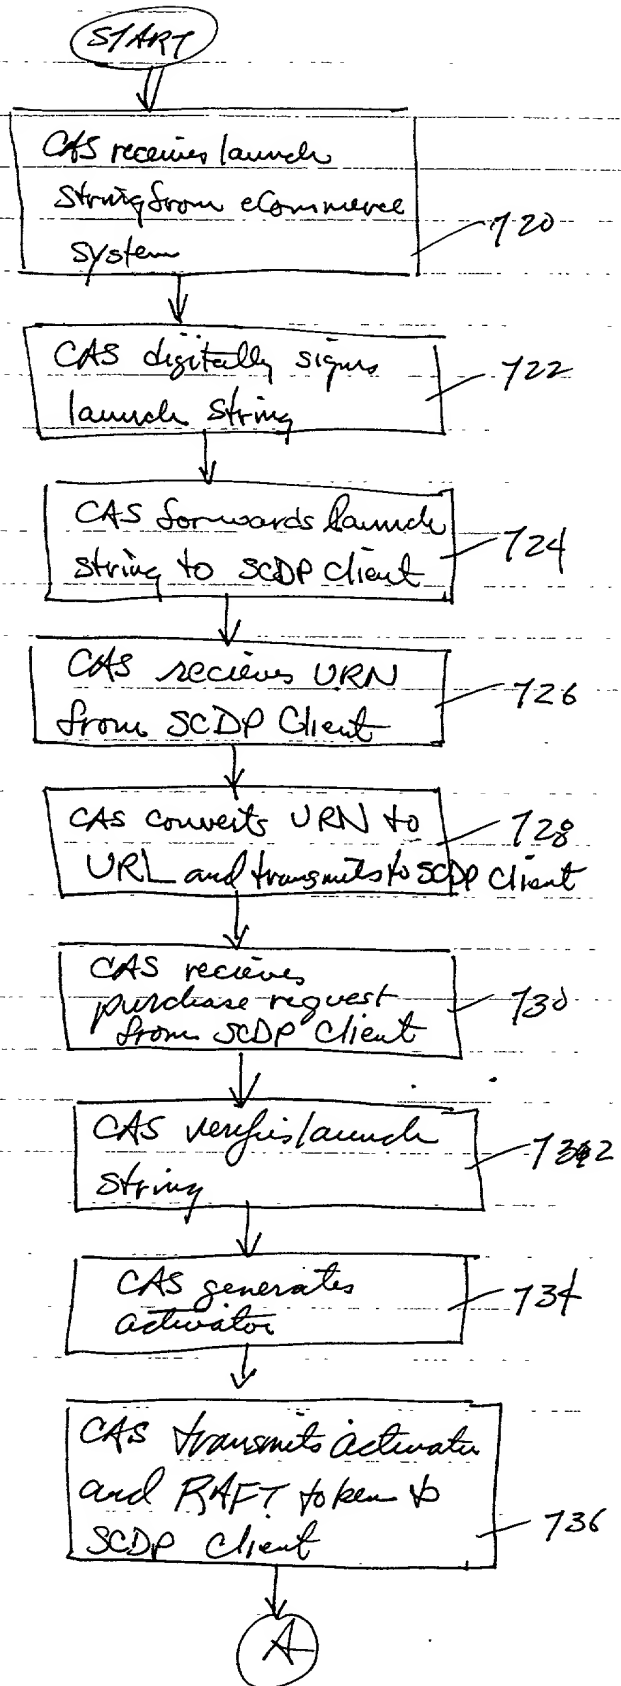 START
CAS receives launch
string from eCommerce
system
720
CAS digitally signs
launch string
722
CAS forwards launch
string to SCDP client
724
CAS recieves URN
from SCDP Client
726
CAS converts URN to
URL and transmits to SCDP Client
728
CAS recieves
purchase request
from SCDP Client
730
CAS verifies launch
string
732
CAS generates
activator
734
CAS transmits activator
and RAFT token to
SCDP client
736
A